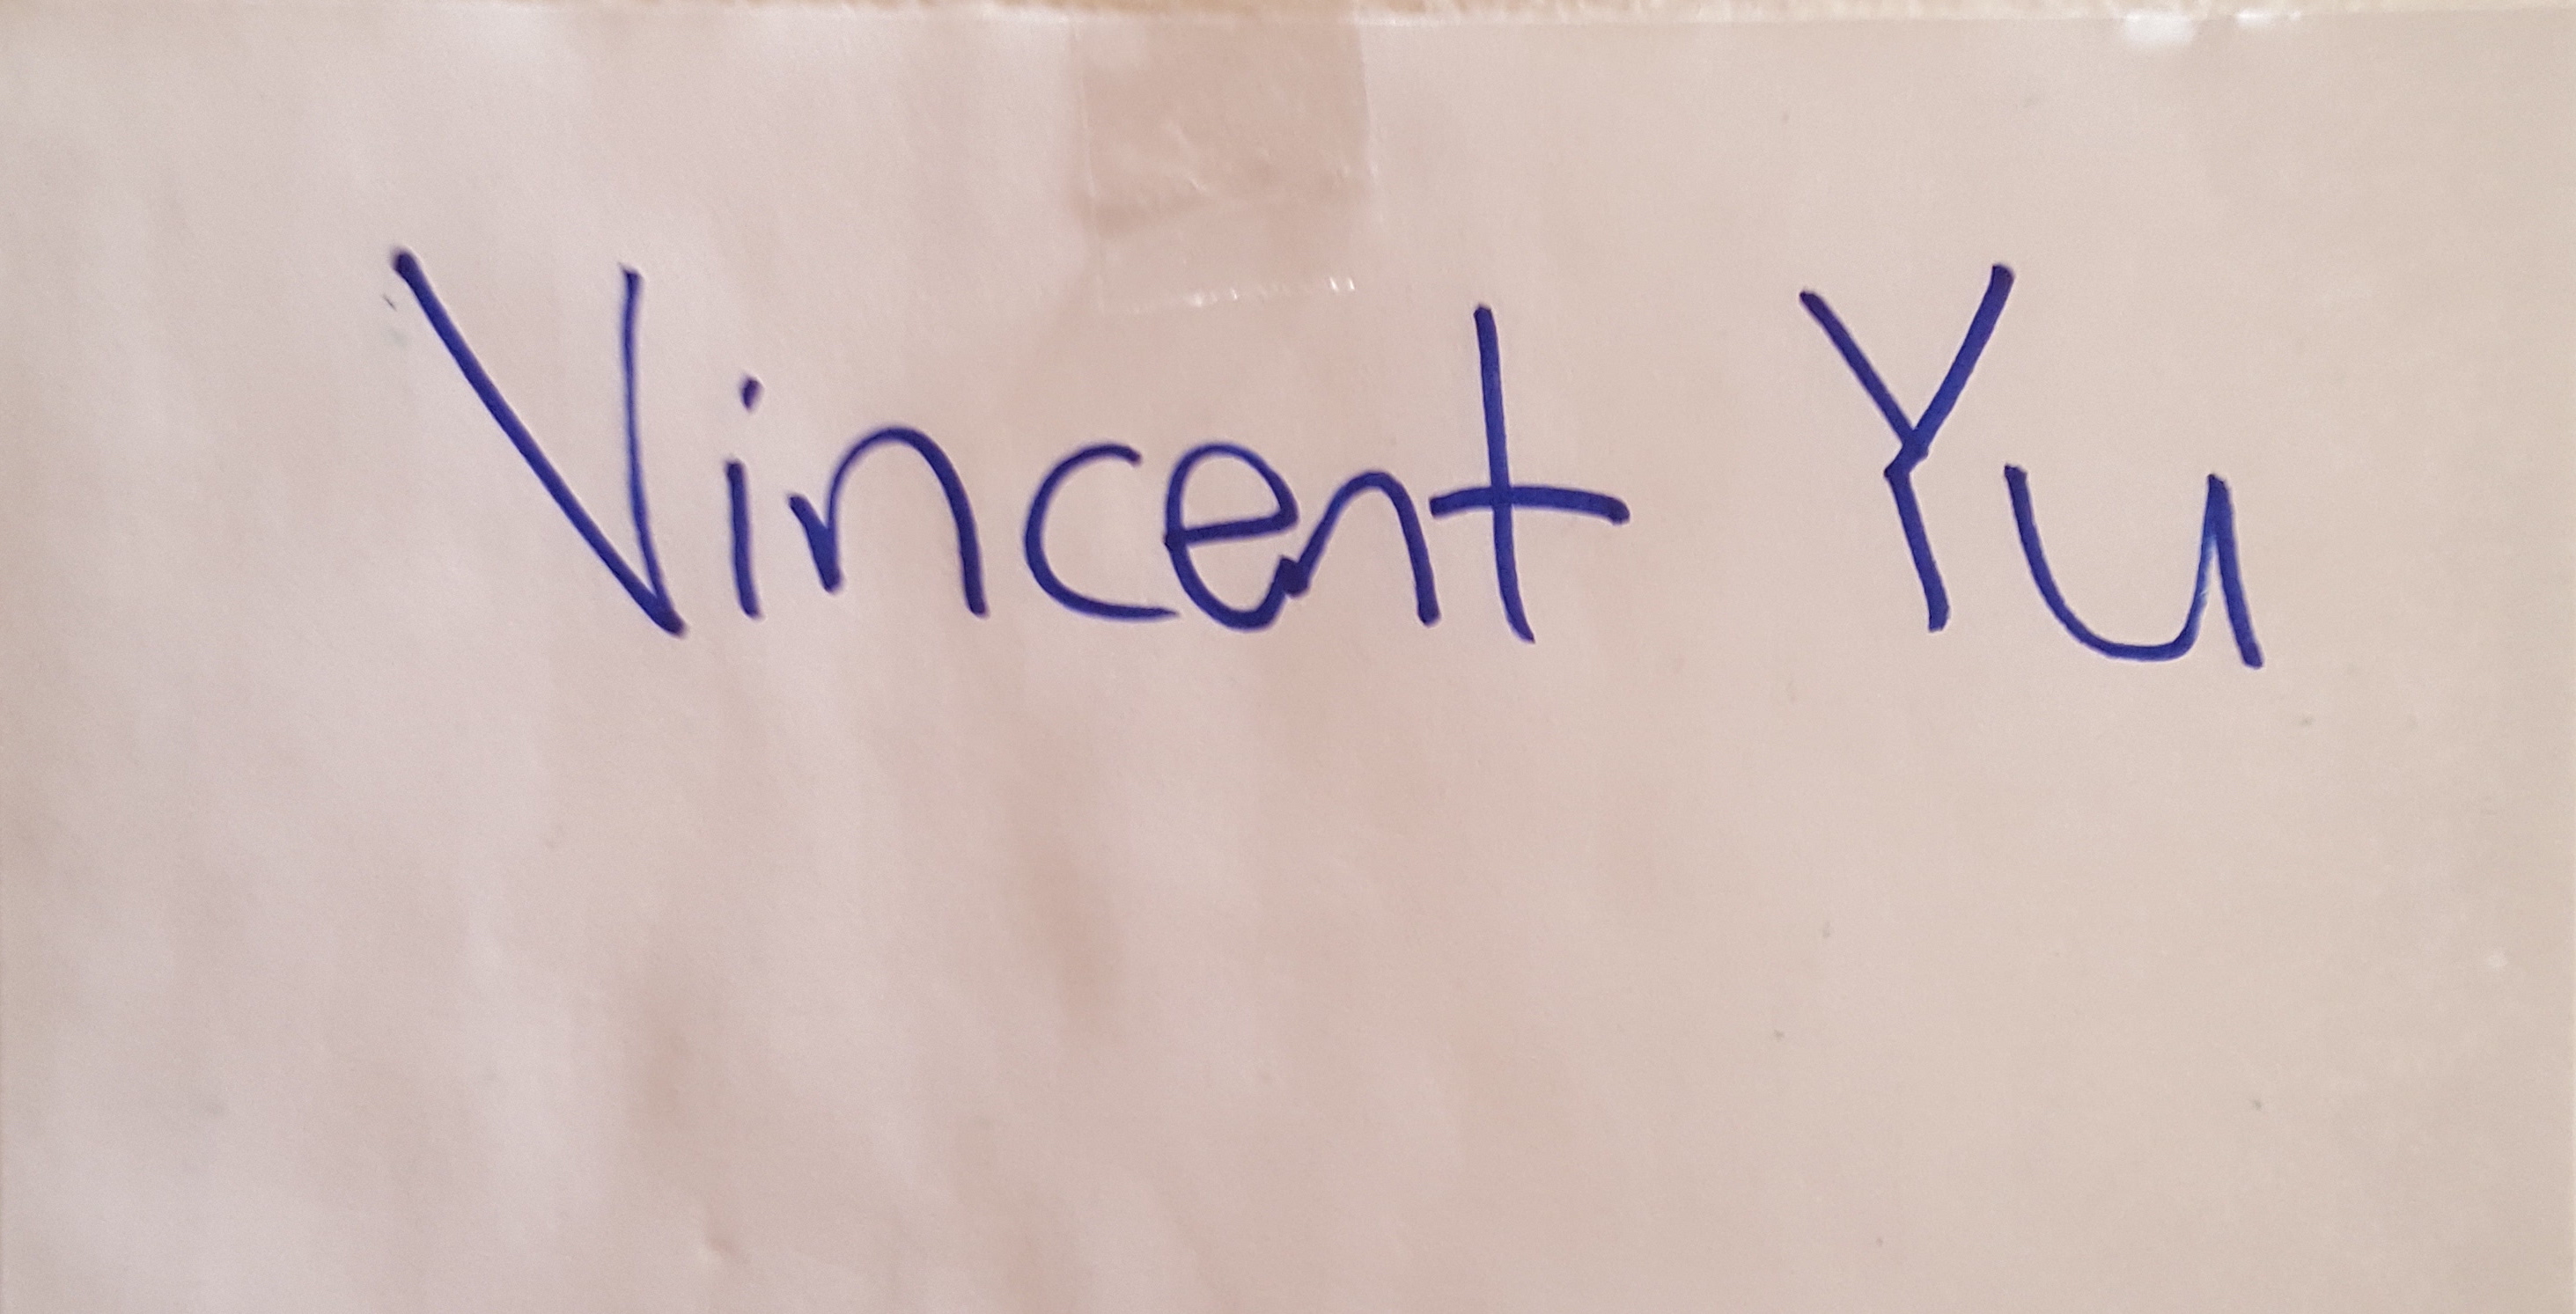 Vincent Yu